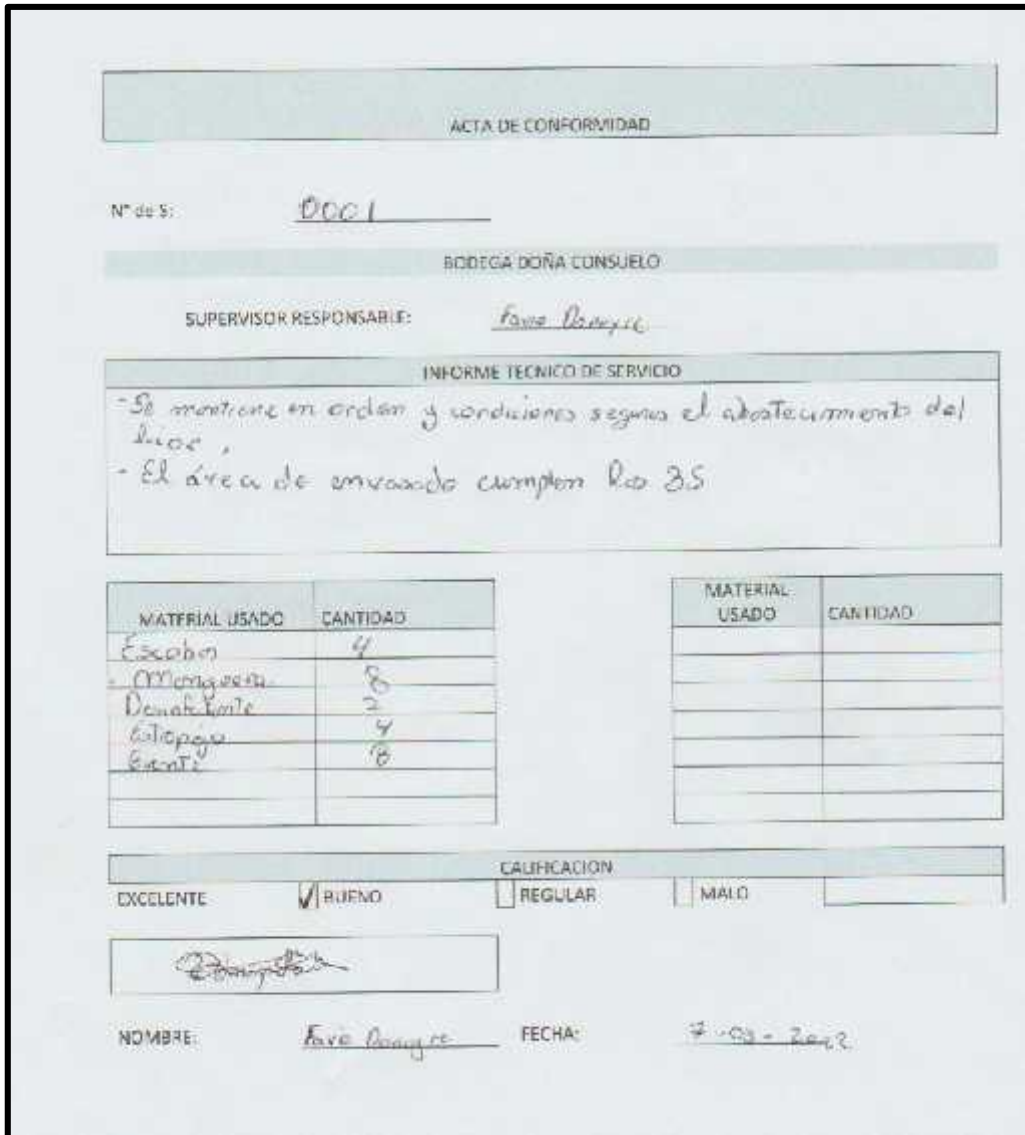 ACTA DE CONFORMIDAD
N° de S: 0001
BODEGA DOÑA CONSUELO
SUPERVISOR RESPONSABLE:
INFORME TECNICO DE SERVICIO
- Se mantiene en orden y condiciones seguras el abastecimiento del
- El área de envasado cumplen las 3S
MATERIAL USADO CANTIDAD
Escobas 4
Manguera 8
2
4
8
MATERIAL
USADO CANTIDAD
CALIFICACION
EXCELENTE BUENO REGULAR MALO
NOMBRE: FECHA: 7-03-2022